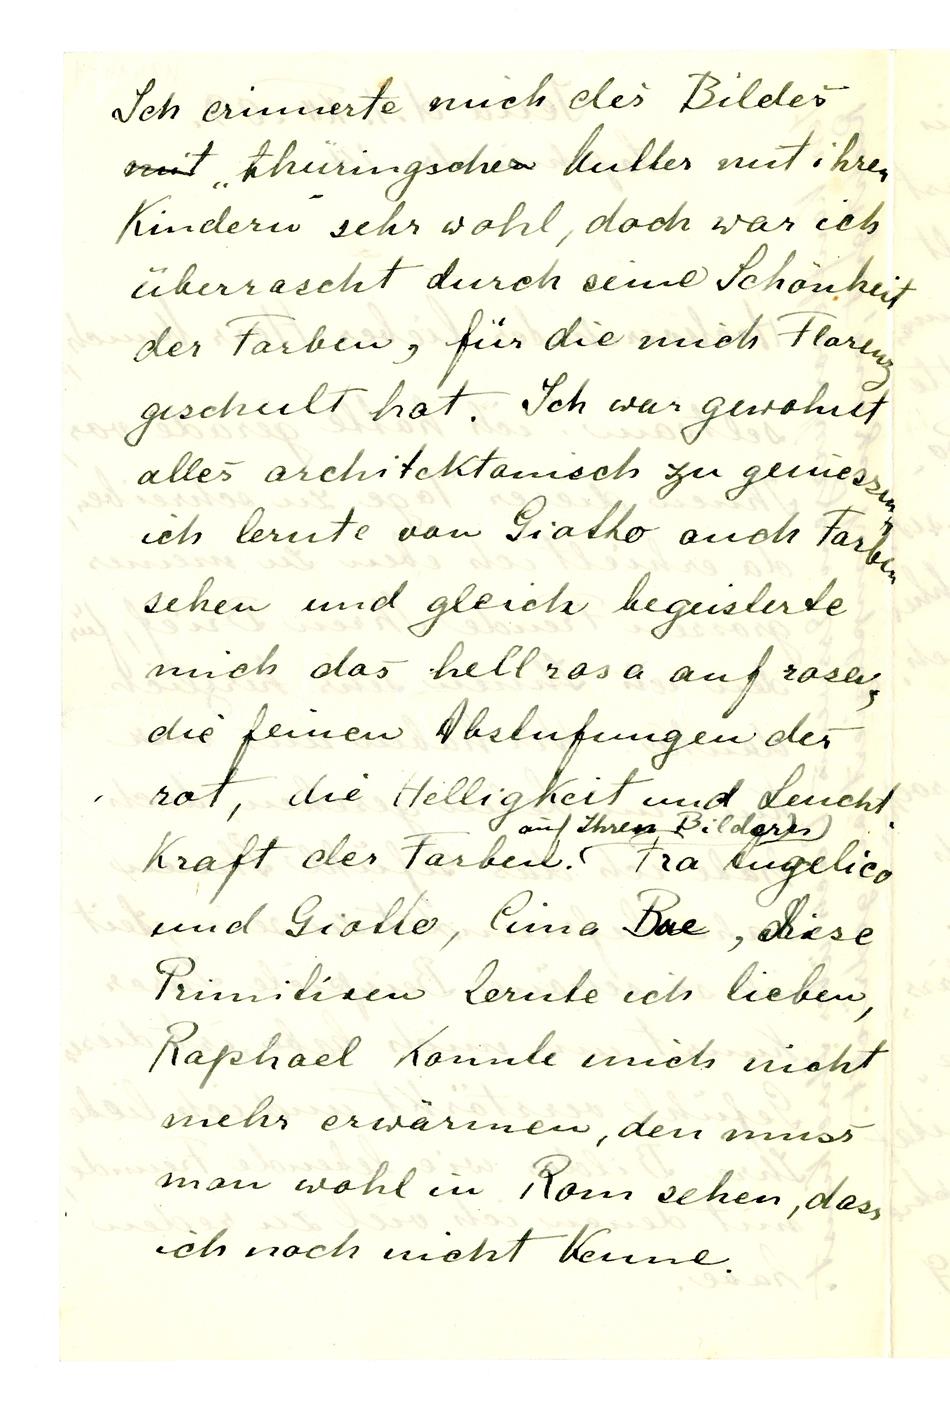 Ich erinnerte mich des Bildes
mit „thüringschen Mutter mit ihren
Kindern" sehr wohl, doch war ich
überrascht durch seine Schönheit
der Farben, für die mich Florenz
geschult hat. Ich war gewohnt
alles architektonisch zu geniessen,
ich lernte von Giotto auch Farben
sehen und gleich begeisterte
mich das hellrosa auf rosa,
die feinen Abstufungen des
rot, die Helligkeit und Leucht
auf Ihren Bildern)
Kraft der Farben. ( Fra Angelico
und Giotto, Cima , diese
Primitiven lernte ich lieben,
Raphael konnte mich nicht
mehr erwärmen, den muss
man wohl in Rom sehen, dass
ich noch nicht kenne.